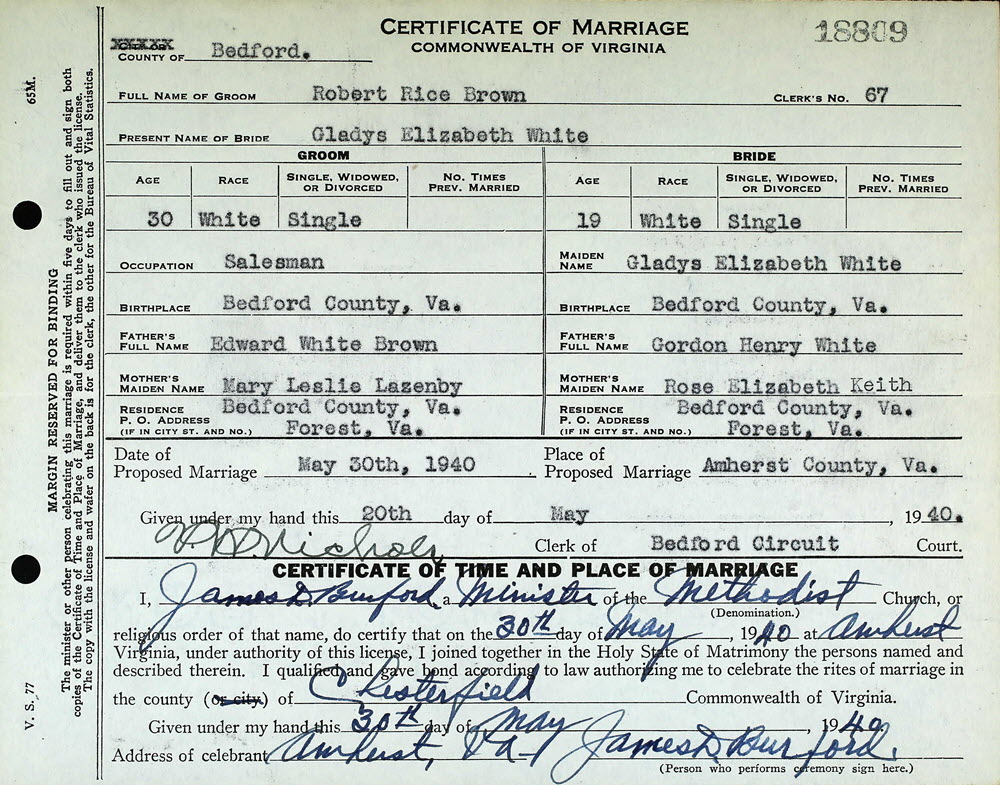 CERTIFICATE OF MARRIAGE
COMMONWEALTH OF VIRGINIA
18809
COUNTY OF Bedford.
FULL NAME OF GROOM Robert Rice Brown CLERK'S NO. 67
PRESENT NAME OF BRIDE Gladys Elizabeth White
GROOM BRIDE
AGE RACE SINGLE, WIDOWED, OR DIVORCED NO. TIMES PREV. MARRIED AGE RACE SINGLE, WIDOWED, OR DIVORCED NO. TIMES PREV. MARRIED
30 White Single 19 White Single
OCCUPATION Salesman MAIDEN NAME Gladys Elizabeth White
BIRTHPLACE Bedford County, Va. BIRTHPLACE Bedford County, Va.
FATHER'S FULL NAME Edward White Brown FATHER'S FULL NAME Gordon Henry White
MOTHER'S MAIDEN NAME Mary Leslie Lazenby MOTHER'S MAIDEN NAME Rose Elizabeth Keith
RESIDENCE Bedford County, Va. RESIDENCE Bedford County, Va.
P. O. ADDRESS (IF IN CITY ST. AND NO.) Forest, Va. P. O. ADDRESS (IF IN CITY ST. AND NO.) Forest, Va.
Date of Proposed Marriage May 30th, 1940 Place of Proposed Marriage Amherst County, Va.
Given under my hand this 20th day of May, 1940.
Nichols Clerk of Bedford Circuit Court.
CERTIFICATE OF TIME AND PLACE OF MARRIAGE
I, James D. Burford, a Minister of the Methodist Church, or
(Denomination.)
religious order of that name, do certify that on the 30th day of May, 1940 at Amherst
Virginia, under authority of this license, I joined together in the Holy State of Matrimony the persons named and
described therein. I qualified and gave bond according to law authorizing me to celebrate the rites of marriage in
the county (or city) of Chesterfield Commonwealth of Virginia.
Given under my hand this 30th day of May, 1940
Address of celebrant Amherst, Va. James D. Burford.
(Person who performs ceremony sign here.)
65M.
MARGIN RESERVED FOR BINDING
The minister or other person celebrating this marriage is required within five days to fill out and sign both
copies of the Certificate of Time and Place of Marriage, and deliver them to the clerk who issued the license.
The copy with the license and wafer on the back is for the clerk, the other for the Bureau of Vital Statistics.
V. S. 77